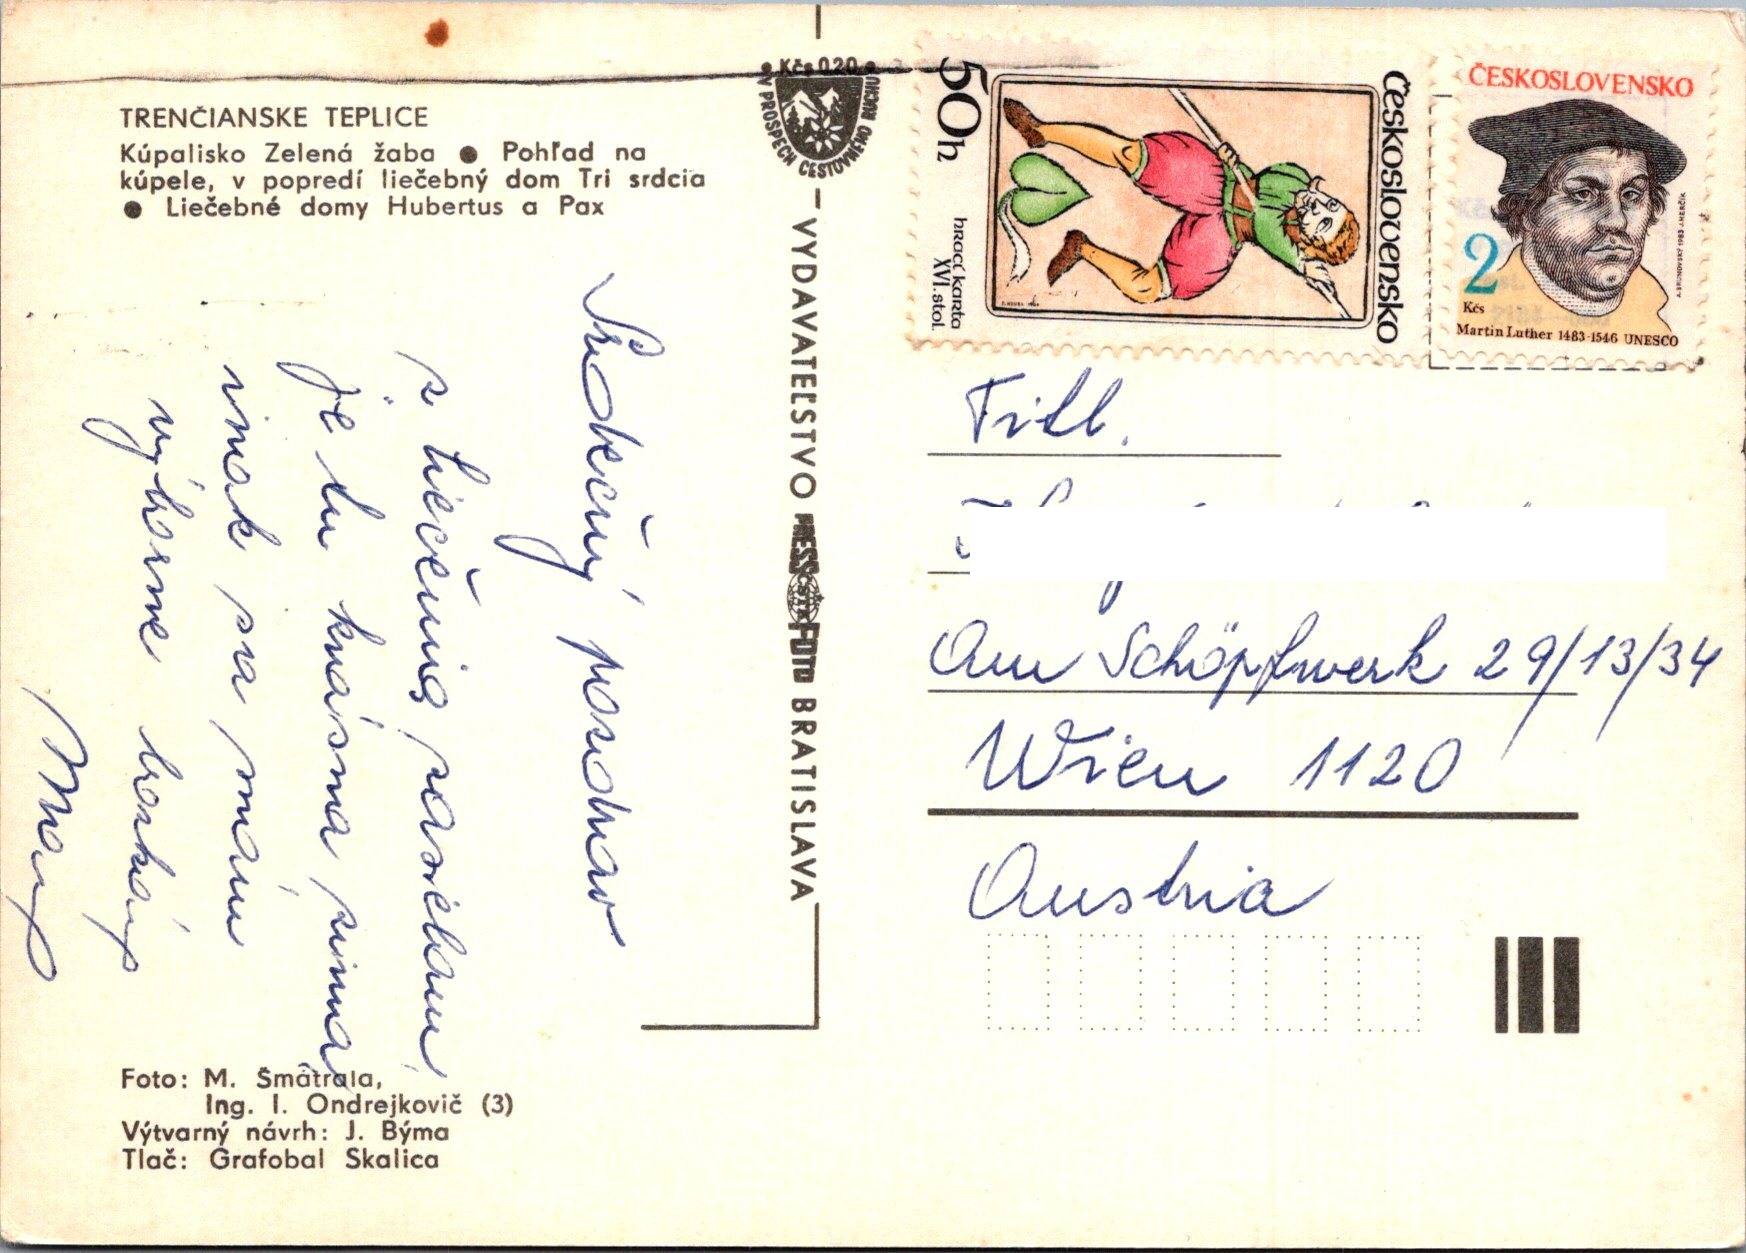 TRENČIANSKE TEPLICE
Kúpalisko Zelená žaba ● Pohľad na
kúpele, v popredí liečebný dom Tri srdcia
● Liečebné domy Hubertus a Pax
Srdečný pozdrav
z liečenia zasielam
je tu krásna zima
inak sa mám
výborne
Foto: M. Šmátrala,
Ing. I. Ondrejkovič (3)
Výtvarný návrh: J. Býma
Tlač: Grafobal Skalica
Kčs 0,20
V PROSPECH CESTOVNÉHO RUCHU
VYDAVATEĽSTVO PRESSFOTO BRATISLAVA
ČSTK
50h
hrací karta
XVI. stol.
Československo
ČESKOSLOVENSKO
2
Kčs
Martin Luther 1483-1546 UNESCO
Am Schöpfwerk 29/13/34
Wien 1120
Austria